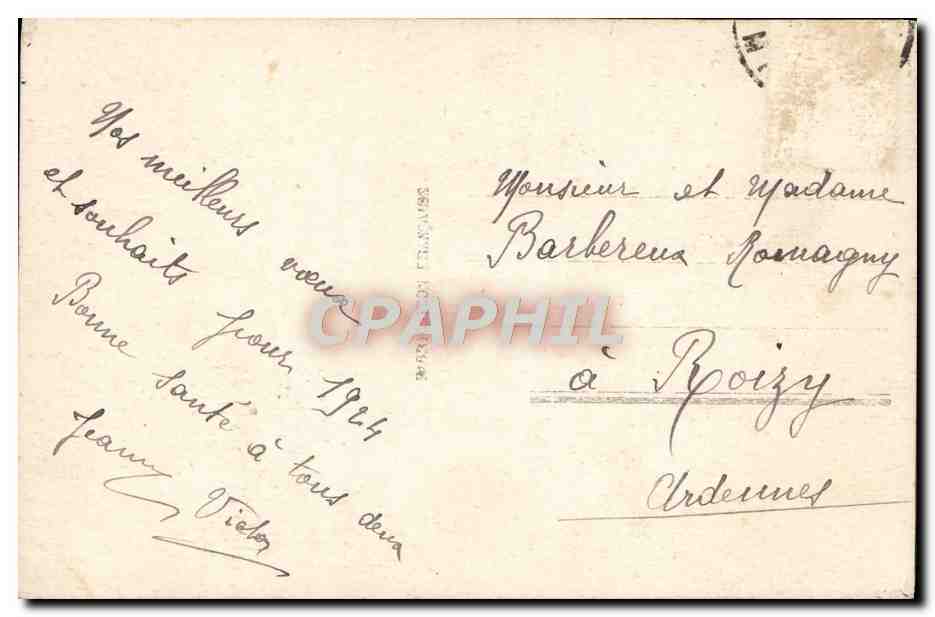 Nos meilleurs vœux
et souhaits pour 1924
Bonne santé à tous deux
Jeanny Victor
FABRICATION FRANÇAISE
Monsieur et Madame
Barbereux Romagny
à Roizy
Ardennes
CPAPHIL